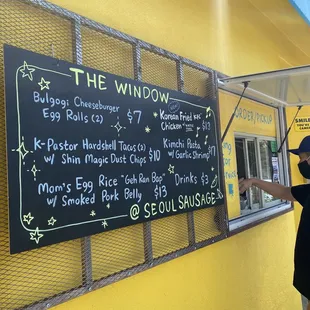 THE WINDOW
Bulgogi Cheeseburger
Egg Rolls (2) $7
K-Pastor Hardshell Tacos (2)
w/ Shin Magic Dust Chips $10
Mom's Egg Rice "Geh Ran Bap"
w/ Smoked Pork Belly $13
Korean Fried
Chicken
Kimchi Pasta
w/ Garlic Shrimp
Drinks $3
@ SEOULSAUSAGE
ORDER/PICKUP
SMILE